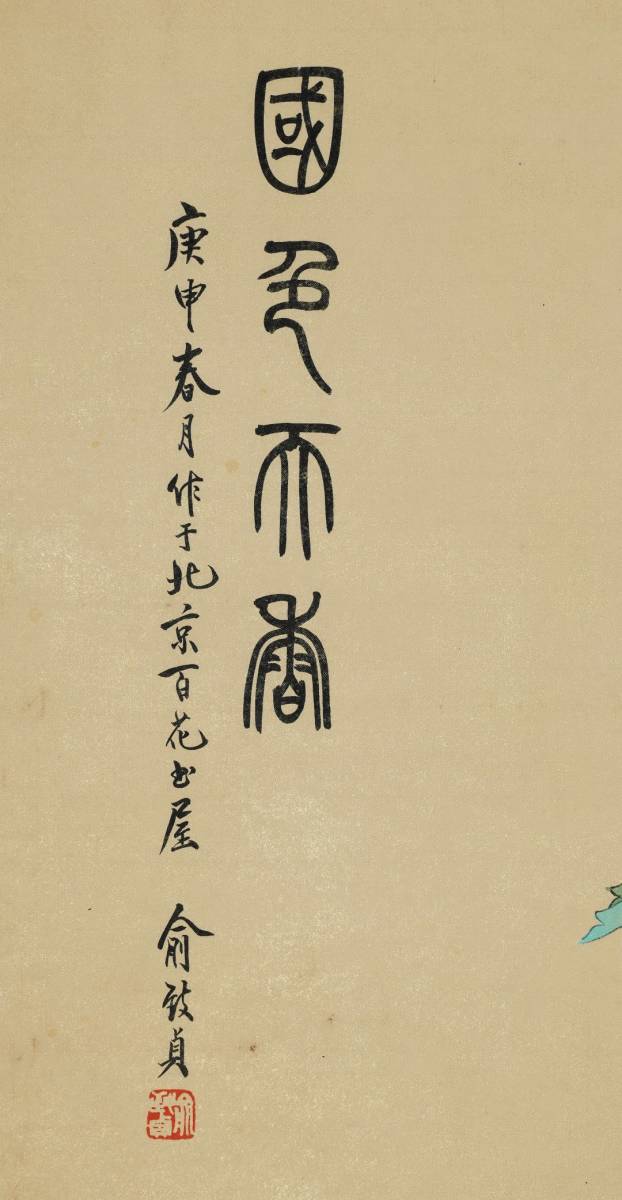 國色天香
庚申春月作于北京百花书屋 俞致貞
俞致貞